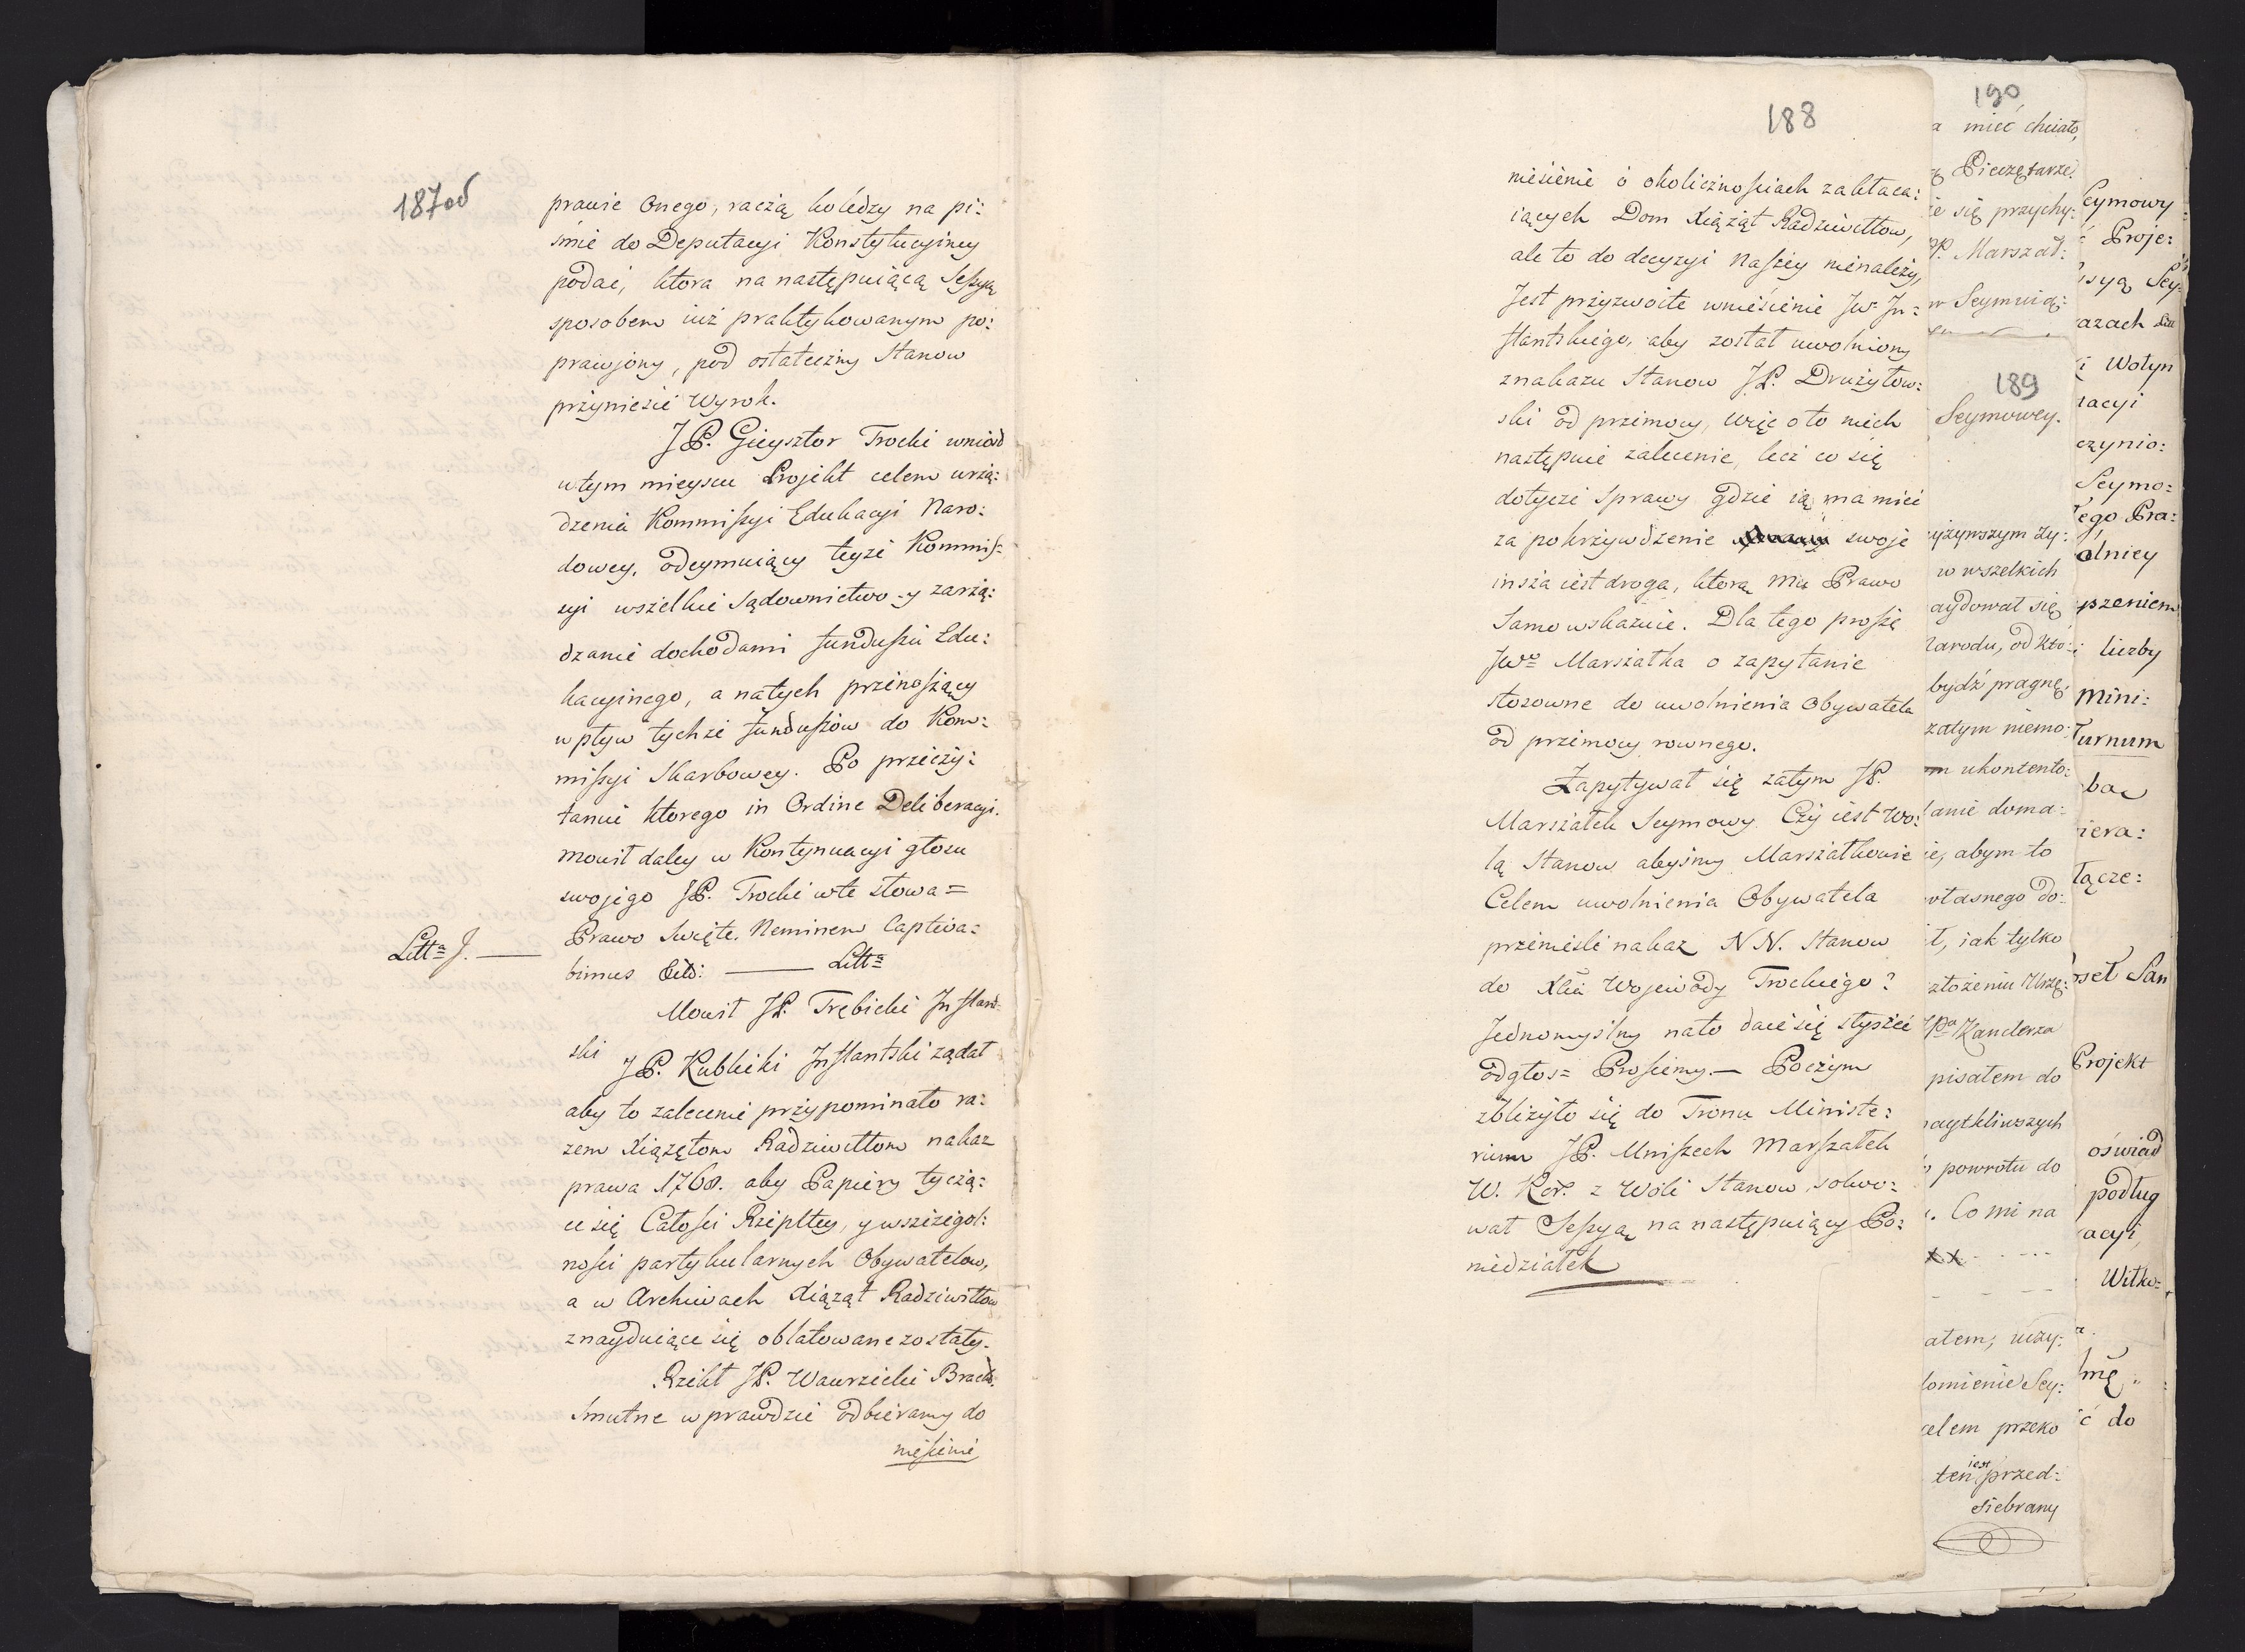 187od
prawie Onego, raczą kolédzy na pi:
śmie do Deputacyi Konstytucyiney
podać, ktora na następuiącą Sessyą
sposobem iuż praktykowanym po:
prawiony, pod ostateczny Stanow
przyniesie Wyrok.
JP. Gieysztor Trocki wniosł
w tym mieyscu Projekt celem urzą:
dzenia Kommissyi Edukacyi Naro:
dowey, odeymuiący teyże Kommis=
syi wszelkie Sądownictwo y zarzą:
dzanie dochodami funduszu Edu:
kacyinego, a natych przenoszący
wpływ tychże funduszów do Kom:
missyi Skarbowey. Po przeczy:
taniu ktorego in Ordine Deliberacyi.
mowił daley w Kontynuacyi głosu
swojego JP. Trocki w te słowa =
Prawo Swięte. Neminem Captiva=
Litta J. —
bimus Etc: — Litta
Mowił JP. Trębicki Inflant
ski
JP. Kublicki Inflantski żądał
aby to zalecenie przypominało ra:
zem Xiążętom Radziwiłłom nakaz
prawa 1768. aby Papiery tyczą:
ce się Całości Rzepltey, y wszczegol:
ności partykularnych Obywatelow,
a w Archiwach Xiążąt Radziwiłłow
znayduiące się oblatowane zostały.
Rzekł JP. Wawrzecki Bracł.
Smutne wprawdzie odbieramy do
niesienie
188
niesienie o okolicznościach zakłaca:
iących Dom Xiążąt Radziwiłłow,
ale to do decyzyi Naszey nienależy,
Jest przyzwoite wnieścienie JW. In=
flantskiego, aby został uwolniony
znakazu Stanow JP. Drużyłow:
ski od przemocy, więc oto niech
następuie zalecenie, lecz co się
dotycze Sprawy gdzie ią ma mieć
za pokrzywdzenie swoje
insza iest droga, ktorą mu Prawo
Samo wskazuie. Dla tego proszę
JWo Marszałka o zapytanie
stosowne do uwolnienia Obywatela
od przemocy rownego.
Zapytywał się zatym JP.
Marszałek Seymowy. Czy iest wo:
lą Stanow abyśmy Marszałkowie
Celem uwolnienia Obywatela
przenieśli nakaz NN. Stanow
do Xcia Wojewody Trockiego?
Jednomyślny nato daie się słyszeć
odgłos = Prosiemy. — Poczym
zbliżyło się do Tronu Ministe:
rium JP. Mniszech Marszałek
W. Kor. z Woli Stanow, solwo:
wał Sessyą na następuiący Po:
niedziałek
190
a mieć chciało,
Pieczętarze
ie się przychy:
PP. Marszał:
w Seymuią:
189
Seymowey.
yższym ży:
w wszelkich
aydował się
Narodu, od Kto:
bydź pragnę,
zatym niemo:
m ukontento:
anie doma:
ie, abym to
własnego do:
ł, iak tylko
złożeniu Urzę:
Kanclerza
pisałem do
naytkliwszych
powrotu do
. Co mi na
xx - - - - -
ałem, uczy:
domienie Sey:
celem przeko
ten iest przed:
siebrany
Seymowy
Proje:
ssyą Sey:
azach
i Wołyn
tacyi
czynio:
Seymo:
Tego Pra:
olniey
pszeniem
i liczby
Mini:
Turnum
bac
iera:
łącze:
oseł San
Projekt
oświad
podług
acyi,
Witko:
mę
ć do